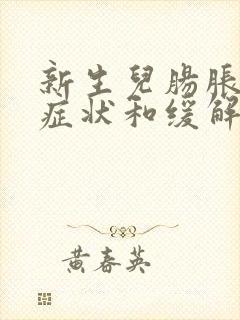 新生兒腸脹
症狀和缓解
黄春英